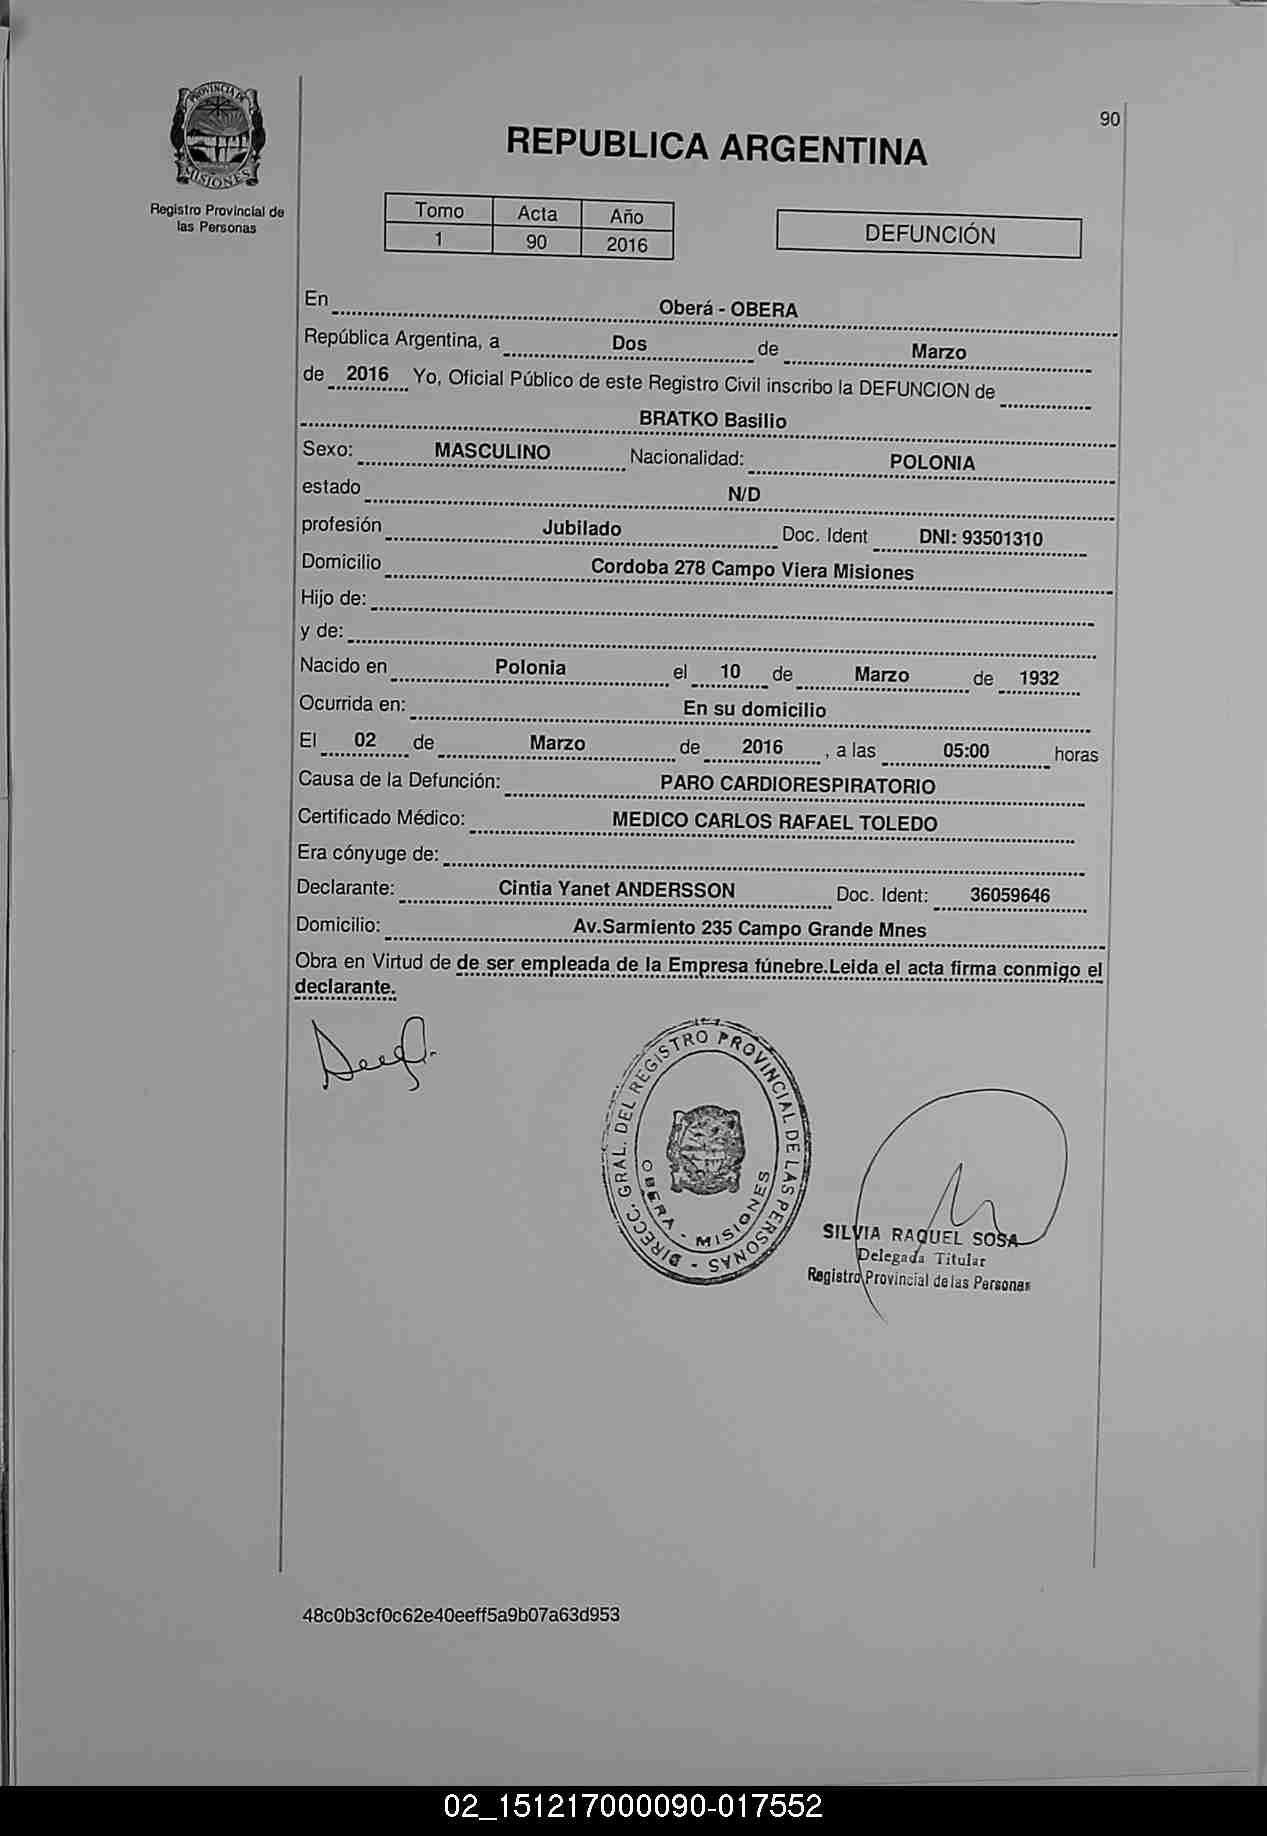 90
PROVINCIA DE
MISIONES
Registro Provincial de
las Personas
REPUBLICA ARGENTINA
Tomo Acta Año
1 90 2016
DEFUNCIÓN
En Oberá - OBERA
República Argentina, a Dos de Marzo
de 2016 Yo, Oficial Público de este Registro Civil inscribo la DEFUNCION de
BRATKO Basilio
Sexo: MASCULINO Nacionalidad: POLONIA
estado N/D
profesión Jubilado Doc. Ident DNI: 93501310
Domicilio Cordoba 278 Campo Viera Misiones
Hijo de:
y de:
Nacido en Polonia el 10 de Marzo de 1932
Ocurrida en: En su domicilio
El 02 de Marzo de 2016 , a las 05:00 horas
Causa de la Defunción: PARO CARDIORESPIRATORIO
Certificado Médico: MEDICO CARLOS RAFAEL TOLEDO
Era cónyuge de:
Declarante: Cintia Yanet ANDERSSON Doc. Ident: 36059646
Domicilio: Av.Sarmiento 235 Campo Grande Mnes
Obra en Virtud de de ser empleada de la Empresa fúnebre.Leida el acta firma conmigo el
declarante.
DIRECC. GRAL. DEL REGISTRO PROVINCIAL DE LAS PERSONAS -
OBERA - MISIONES
SILVIA RAQUEL SOSA
Delegada Titular
Registro Provincial de las Personas
48c0b3cf0c62e40eeff5a9b07a63d953
02_151217000090-017552